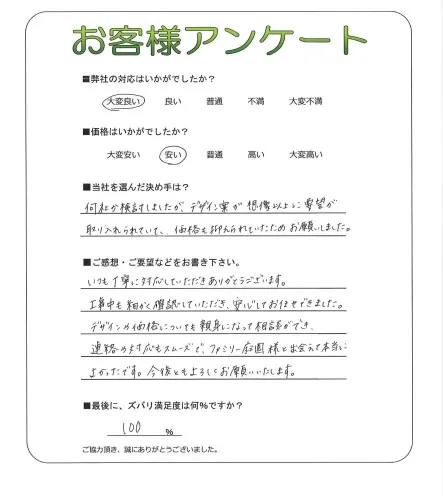 お客様アンケート
■弊社の対応はいかがでしたか?
大変良い 良い 普通 不満 大変不満
■価格はいかがでしたか?
大変安い 安い 普通 高い 大変高い
■当社を選んだ決め手は?
何社か検討しましたが、デザイン案が想像以上に要望が
取り入れられていて、価格も抑えられていたためお願いしました。
■ご感想・ご要望などをお書き下さい。
いつも丁寧に対応していただきありがとうございます。
工事中も細かく確認していただき、安心しておまかせできました。
デザインや価格についても親身になって相談ができ、
連絡の対応もスムーズで、ファミリー庭園様と出会えて本当に
よかったです。今後ともよろしくお願いいたします。
■最後に、ズバリ満足度は何%ですか?
100 %
ご協力頂き、誠にありがとうございました。